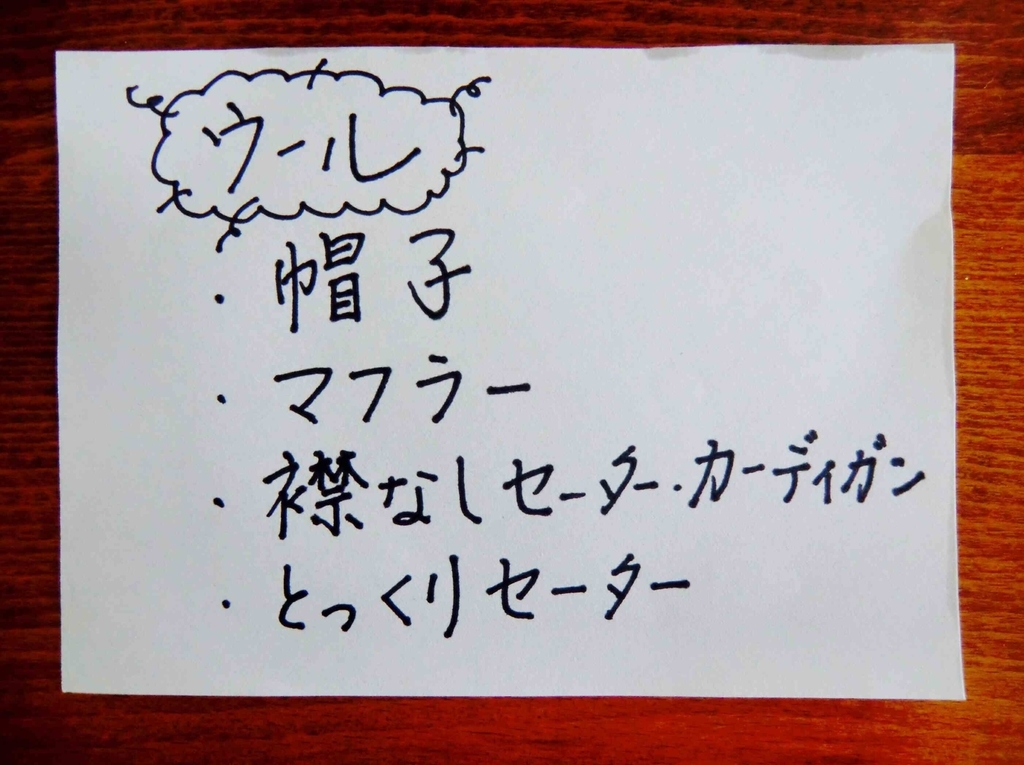 ウール
・帽子
・マフラー
・襟なしセーター・カーディガン
・とっくりセーター